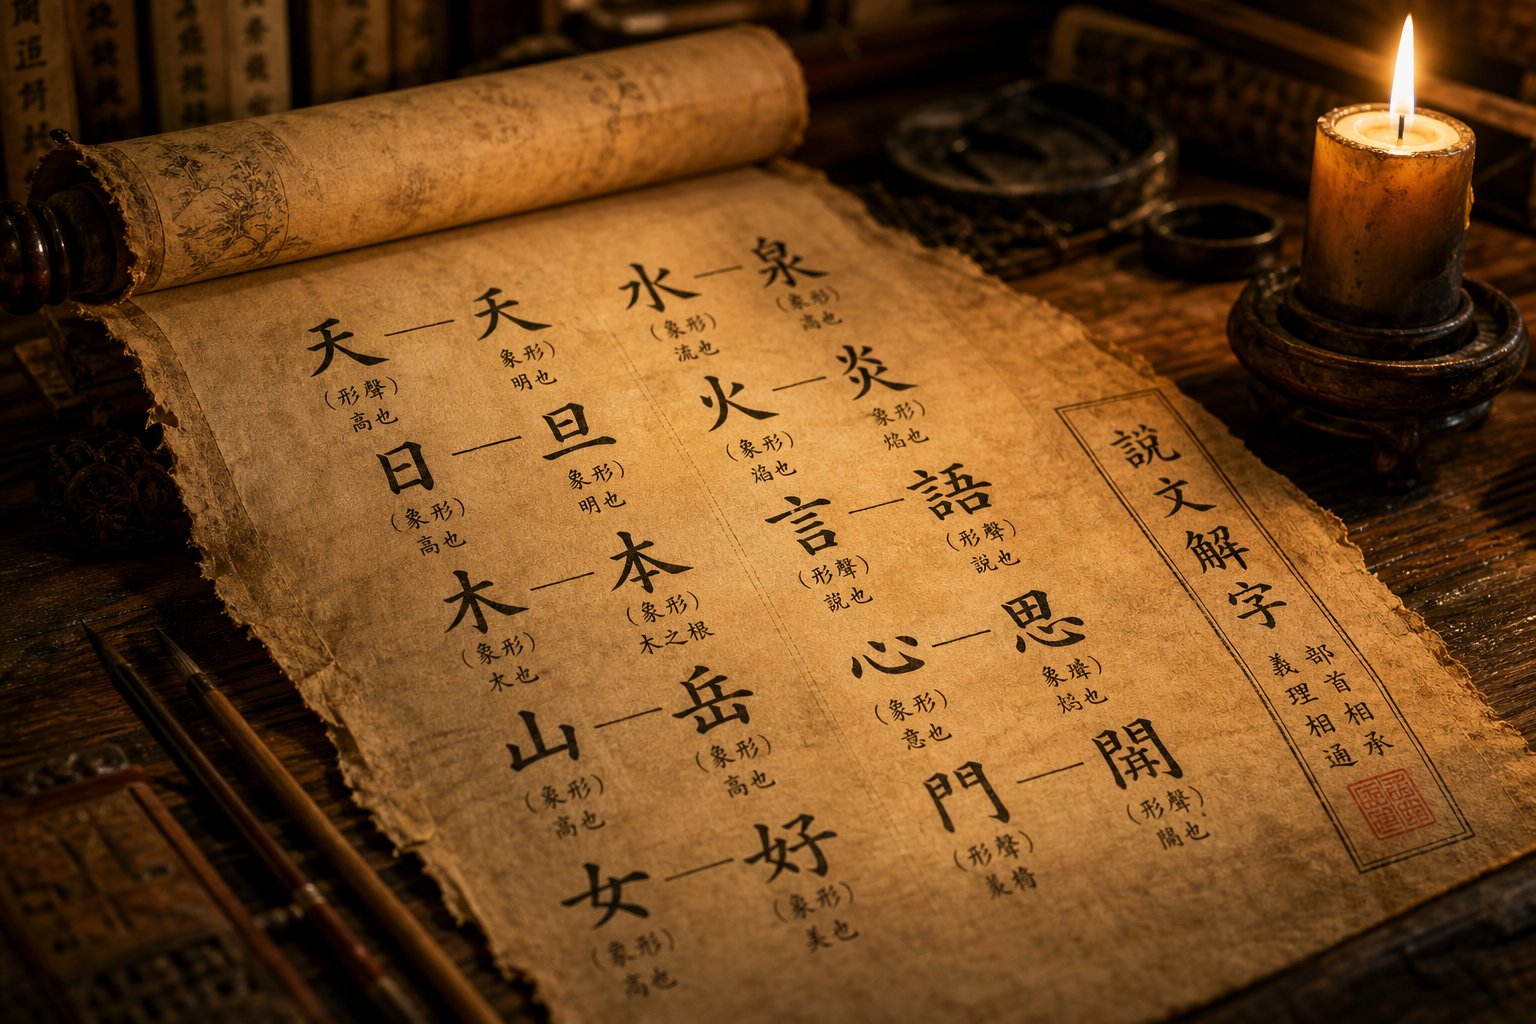 天 — 天
(形聲) 象形)
高也 明也
日 — 旦
(象形) 象形)
高也 明也
木 — 本
(象形) (象形)
木也 木之根
山 — 岳
(象形) (象形)
高也 高也
女 — 好
(象形) (象形)
高也 美也
水 — 泉
(象形) (象形)
流也 高也
火 — 炎
(象形) 象形)
焰也 焰也
言 — 語
(形聲) (形聲)
說也 說也
心 — 思
(象形)
意也
門 — 開
(形聲) (形聲)
說文解字
部首相承
義理相通